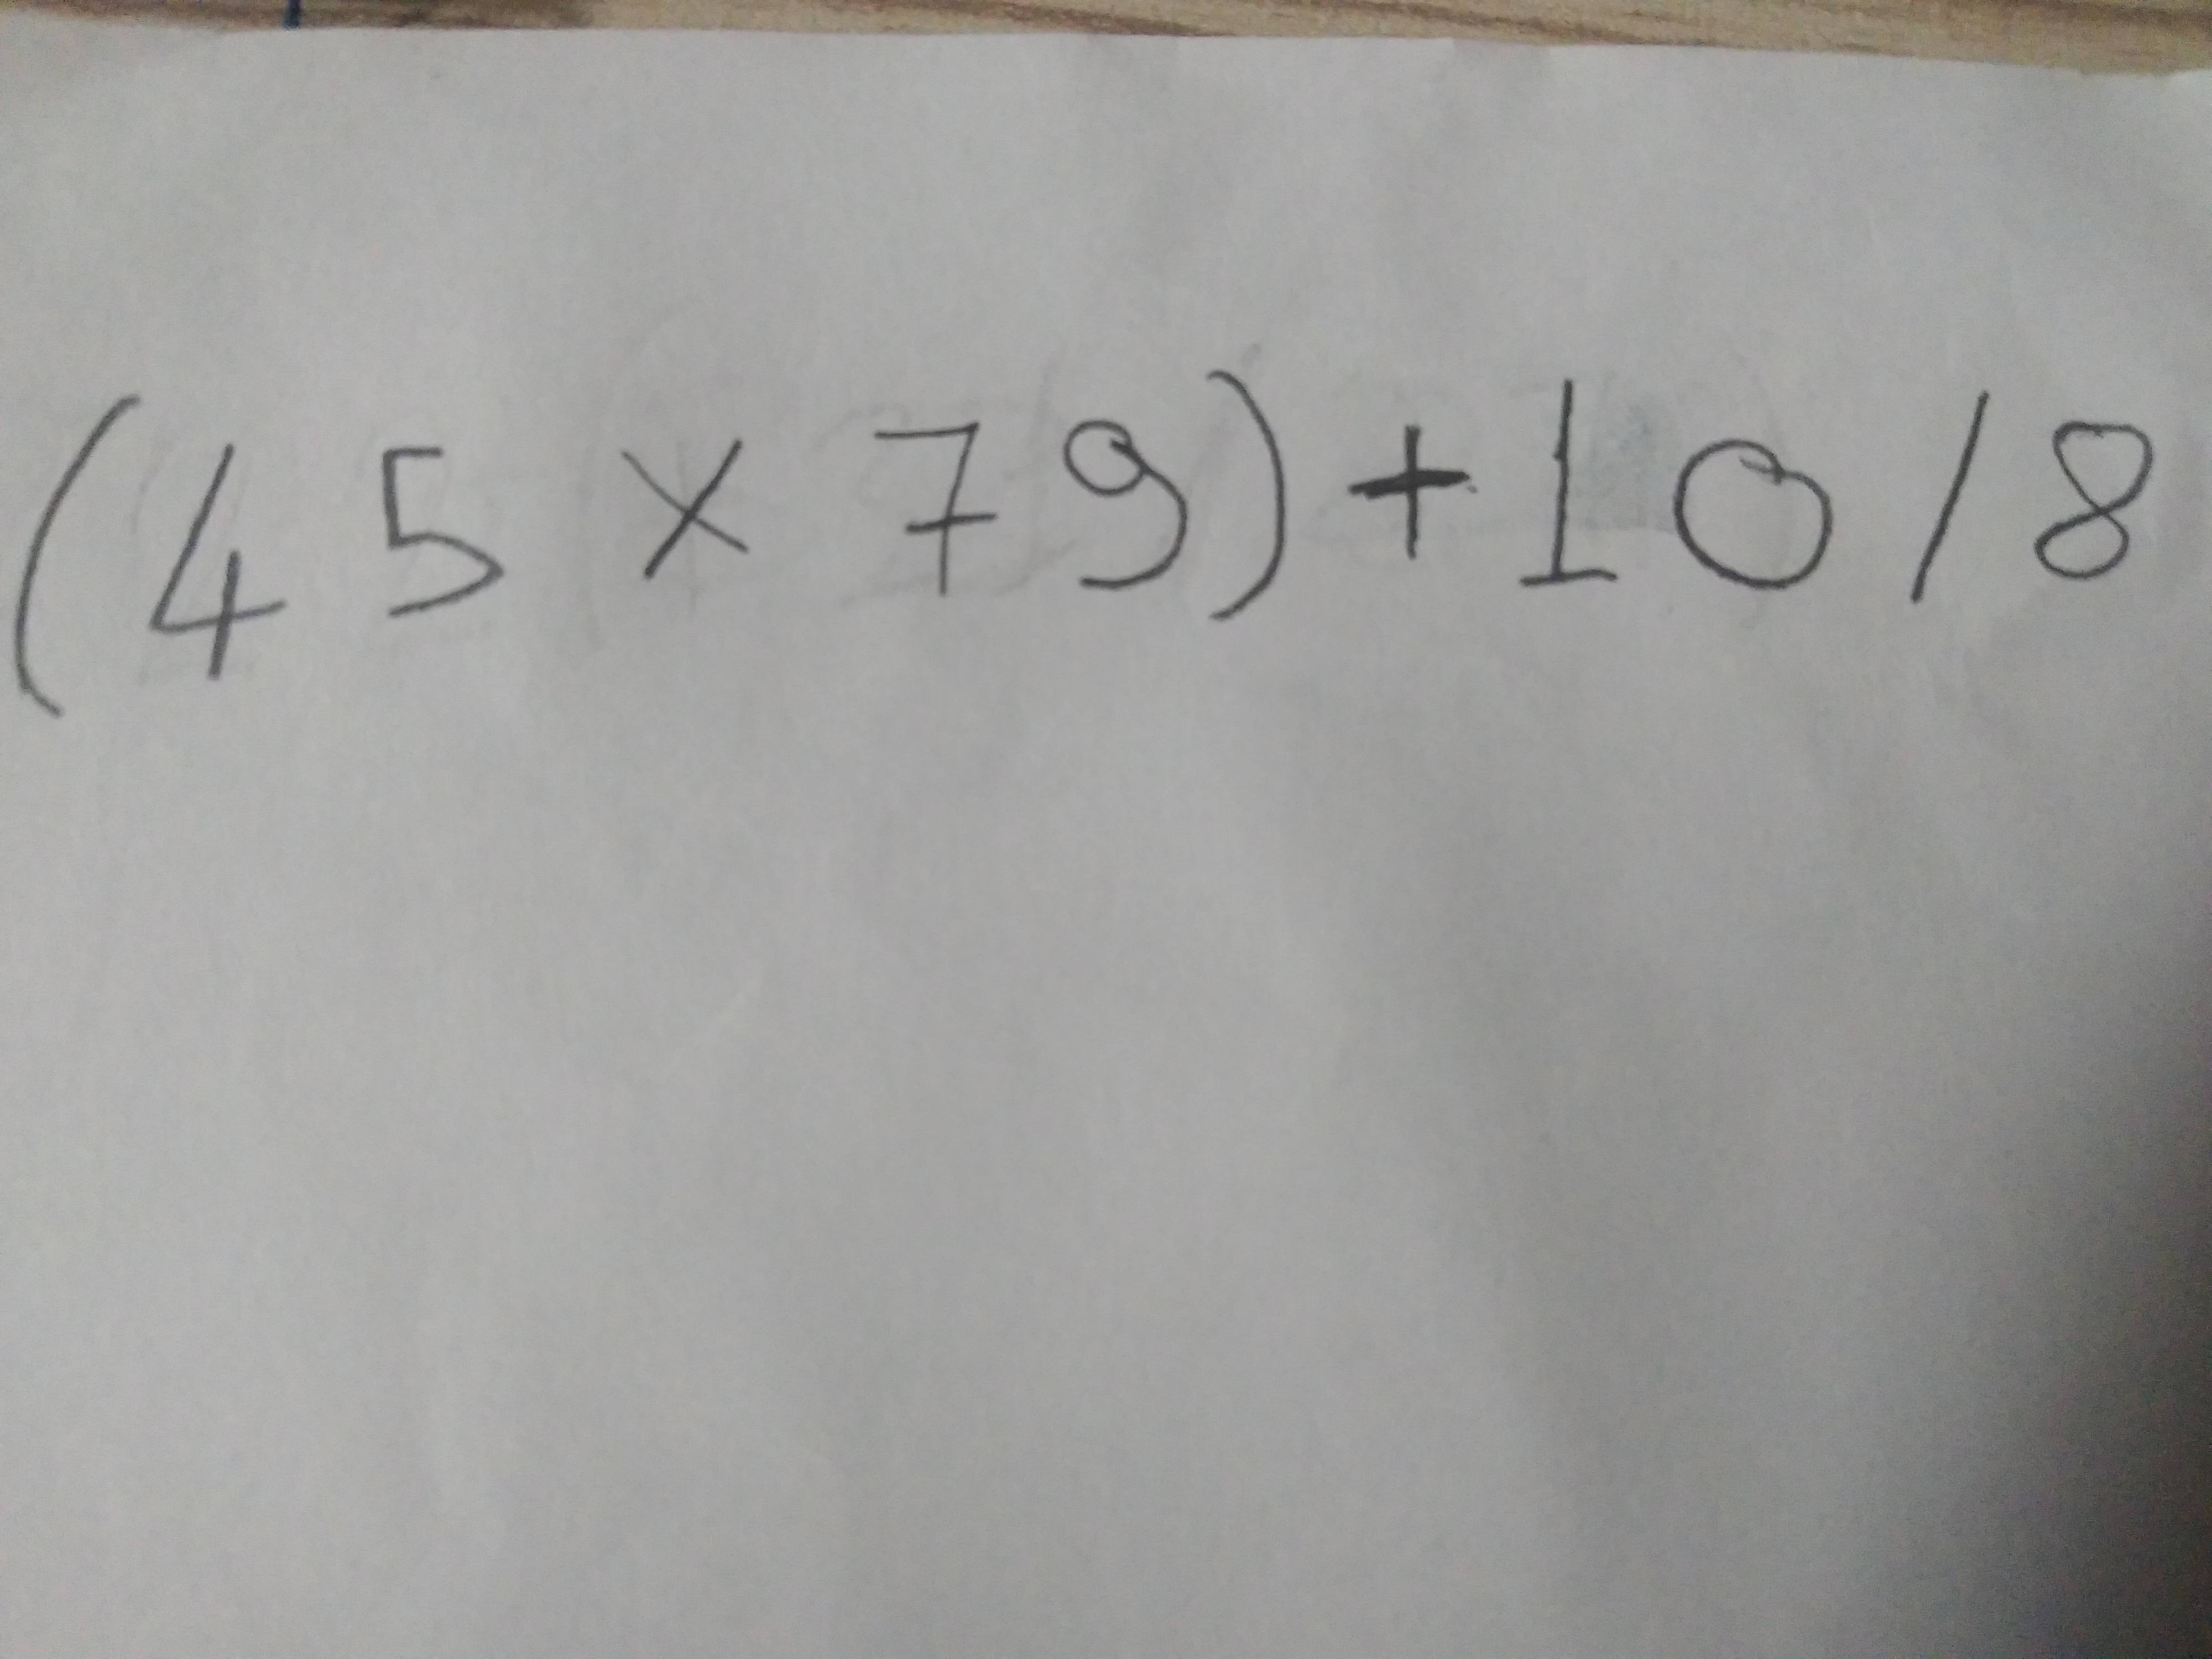 (45 × 79) + 10 / 8